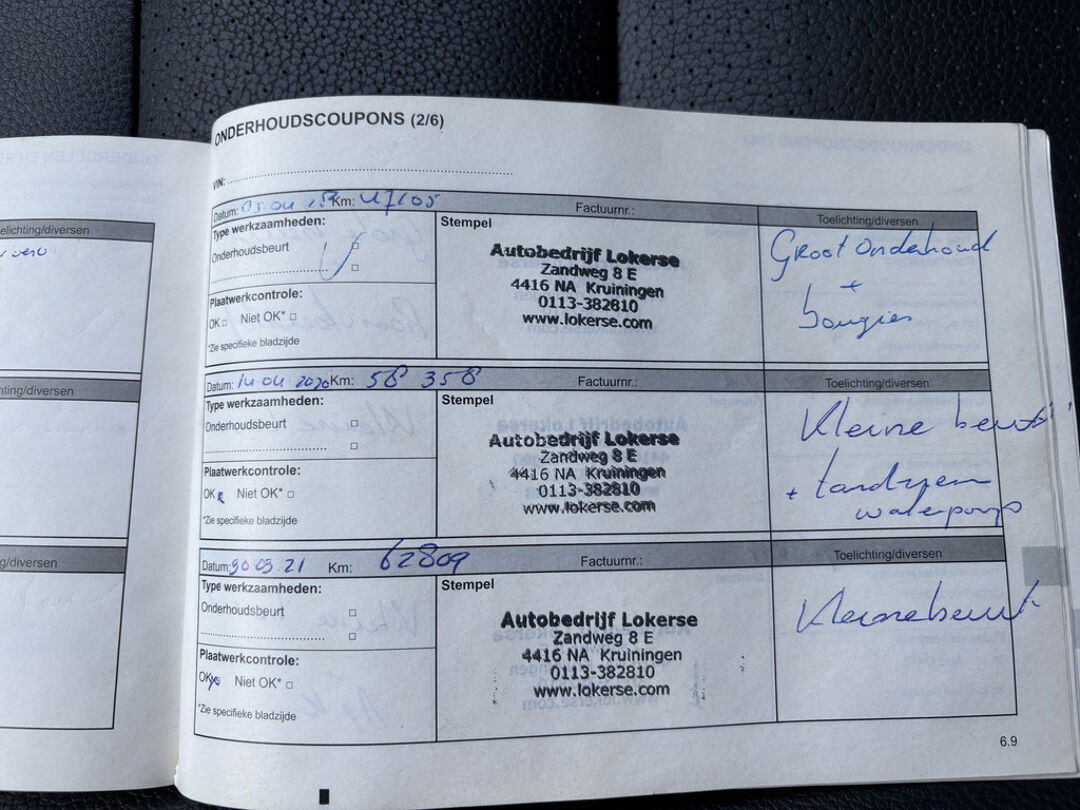 elichting/diversen
hting/diversen
g/diversen
ONDERHOUDSCOUPONS (2/6)
VIN:
Datum: 03.04 Km: 47105 Factuurnr.: Toelichting/diversen
Type werkzaamheden:
Onderhoudsbeurt
Plaatwerkcontrole:
OK □ Niet OK* □
*Zie specifieke bladzijde
Stempel
Autobedrijf Lokerse
Zandweg 8 E
4416 NA Kruiningen
0113-382810
www.lokerse.com
Groot onderhoud
+
bougies
Datum: 14.04.2020 Km: 58 358 Factuurnr.: Toelichting/diversen
Type werkzaamheden:
Onderhoudsbeurt
Plaatwerkcontrole:
OK Niet OK* □
*Zie specifieke bladzijde
Stempel
Autobedrijf Lokerse
Zandweg 8 E
4416 NA Kruiningen
0113-382810
www.lokerse.com
Kleine beurt
+ tandriem
waterpomp
Datum: 30.03.21 Km: 62809 Factuurnr.: Toelichting/diversen
Type werkzaamheden:
Onderhoudsbeurt
Plaatwerkcontrole:
OK Niet OK* □
*Zie specifieke bladzijde
Stempel
Autobedrijf Lokerse
Zandweg 8 E
4416 NA Kruiningen
0113-382810
www.lokerse.com
Kleine beurt
6.9